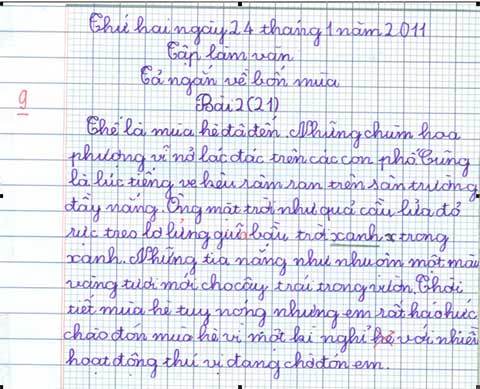 Thứ hai ngày 24 tháng 1 năm 2011
Tập làm văn
Tả ngắn về bốn mùa
Bài 2 (21)
9
Thế là mùa hè đã đến. Những chùm hoa
phượng vĩ nở lác đác trên các con phố. Cũng
là lúc tiếng ve kêu râm ran trên sân trường
đầy nắng. Ông mặt trời như quả cầu lửa đỏ
rực treo lơ lửng giữa bầu trời xanh x trong
xanh. Những tia nắng như nhuộm một màu
vàng tươi mới cho cây trái trong vườn. Thời
tiết mùa hè tuy nóng nhưng em rất háo hức
chào đón mùa hè vì một kì nghỉ hè với nhiều
hoạt động thú vị đang chờ đón em.